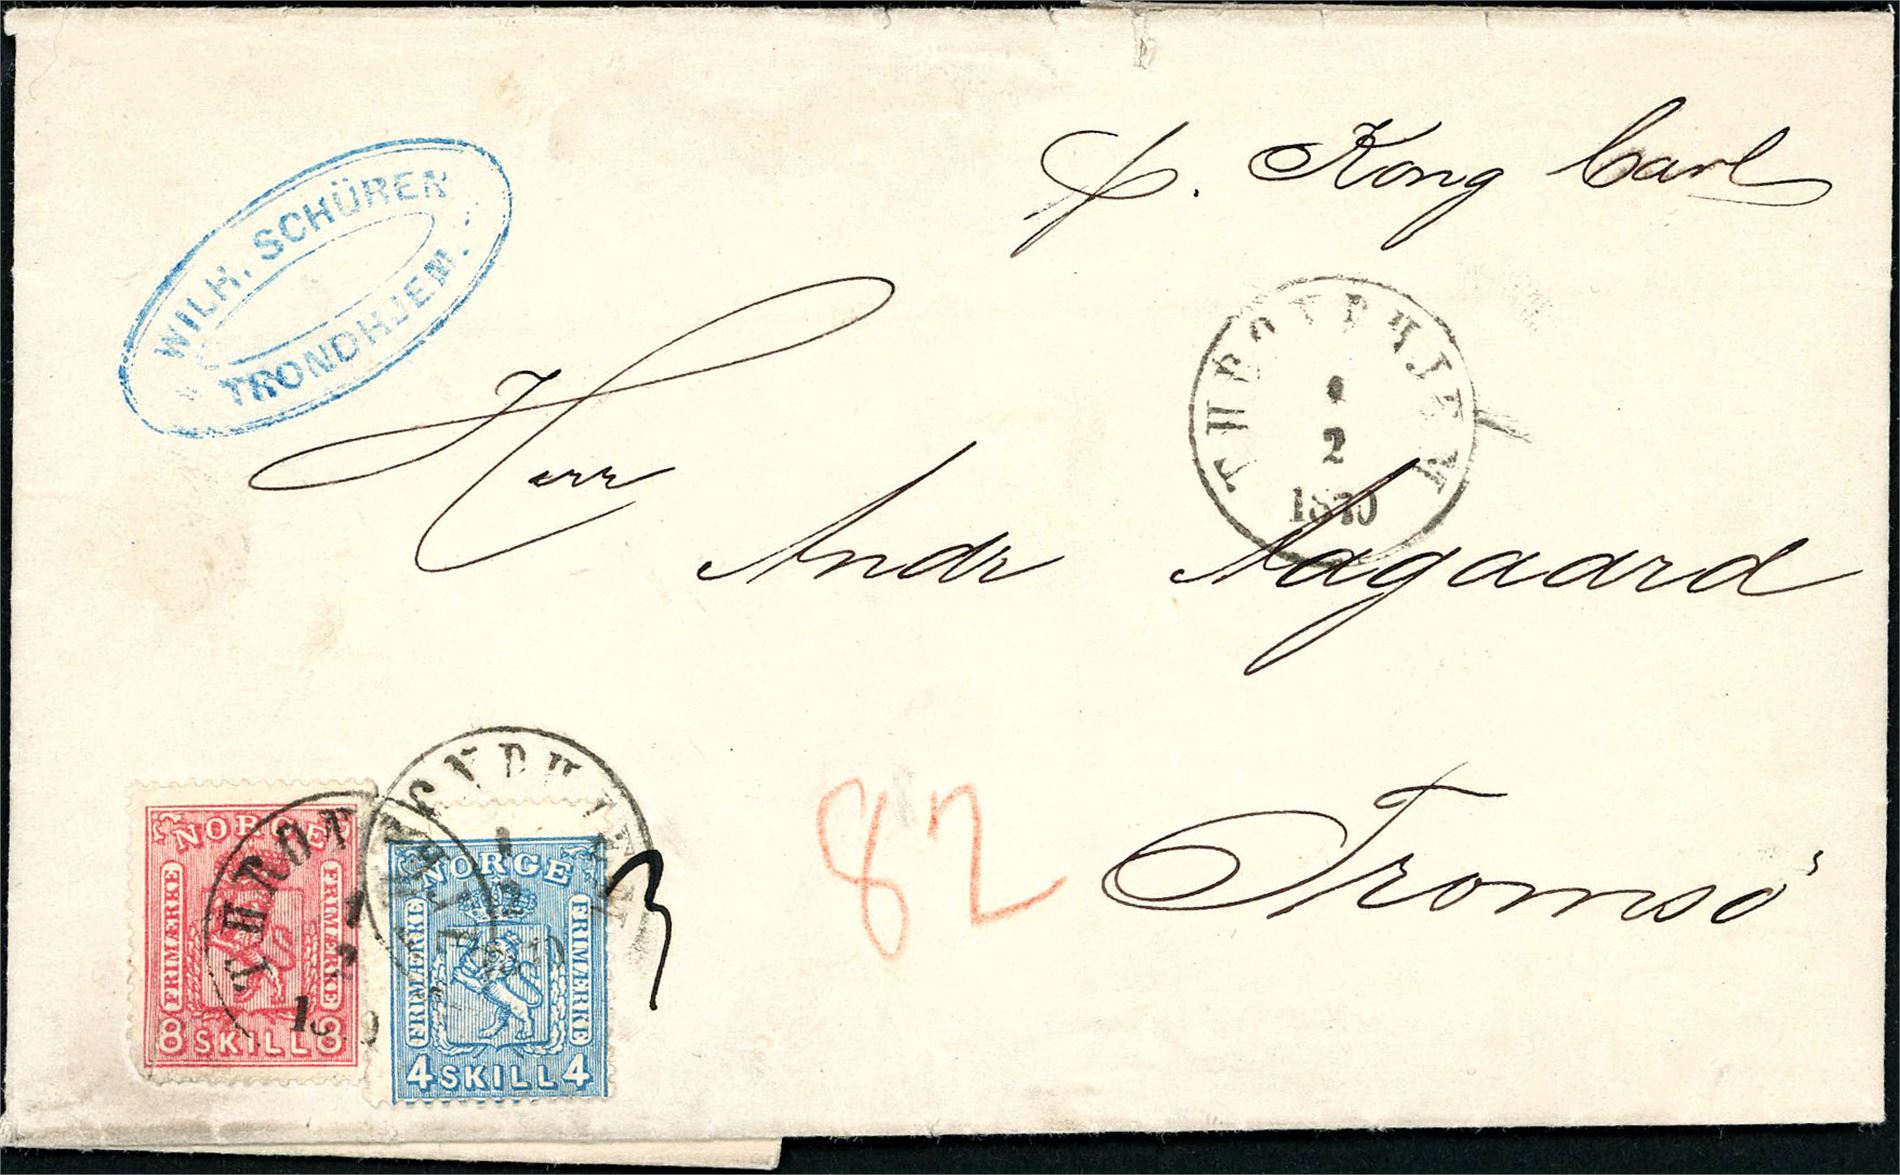 WILH. SCHÜREN
TRONDHJEM.
p. Kong Carl
THRONDHJEM
1
2
1870
Herr
Andr Aagaard
Tromsö
82
3
NORGE
FRIMÆRKE
FRIMÆRKE
8 SKILL 8
NORGE
FRIMÆRKE
FRIMÆRKE
4 SKILL 4
THRONDHJEM
1
2